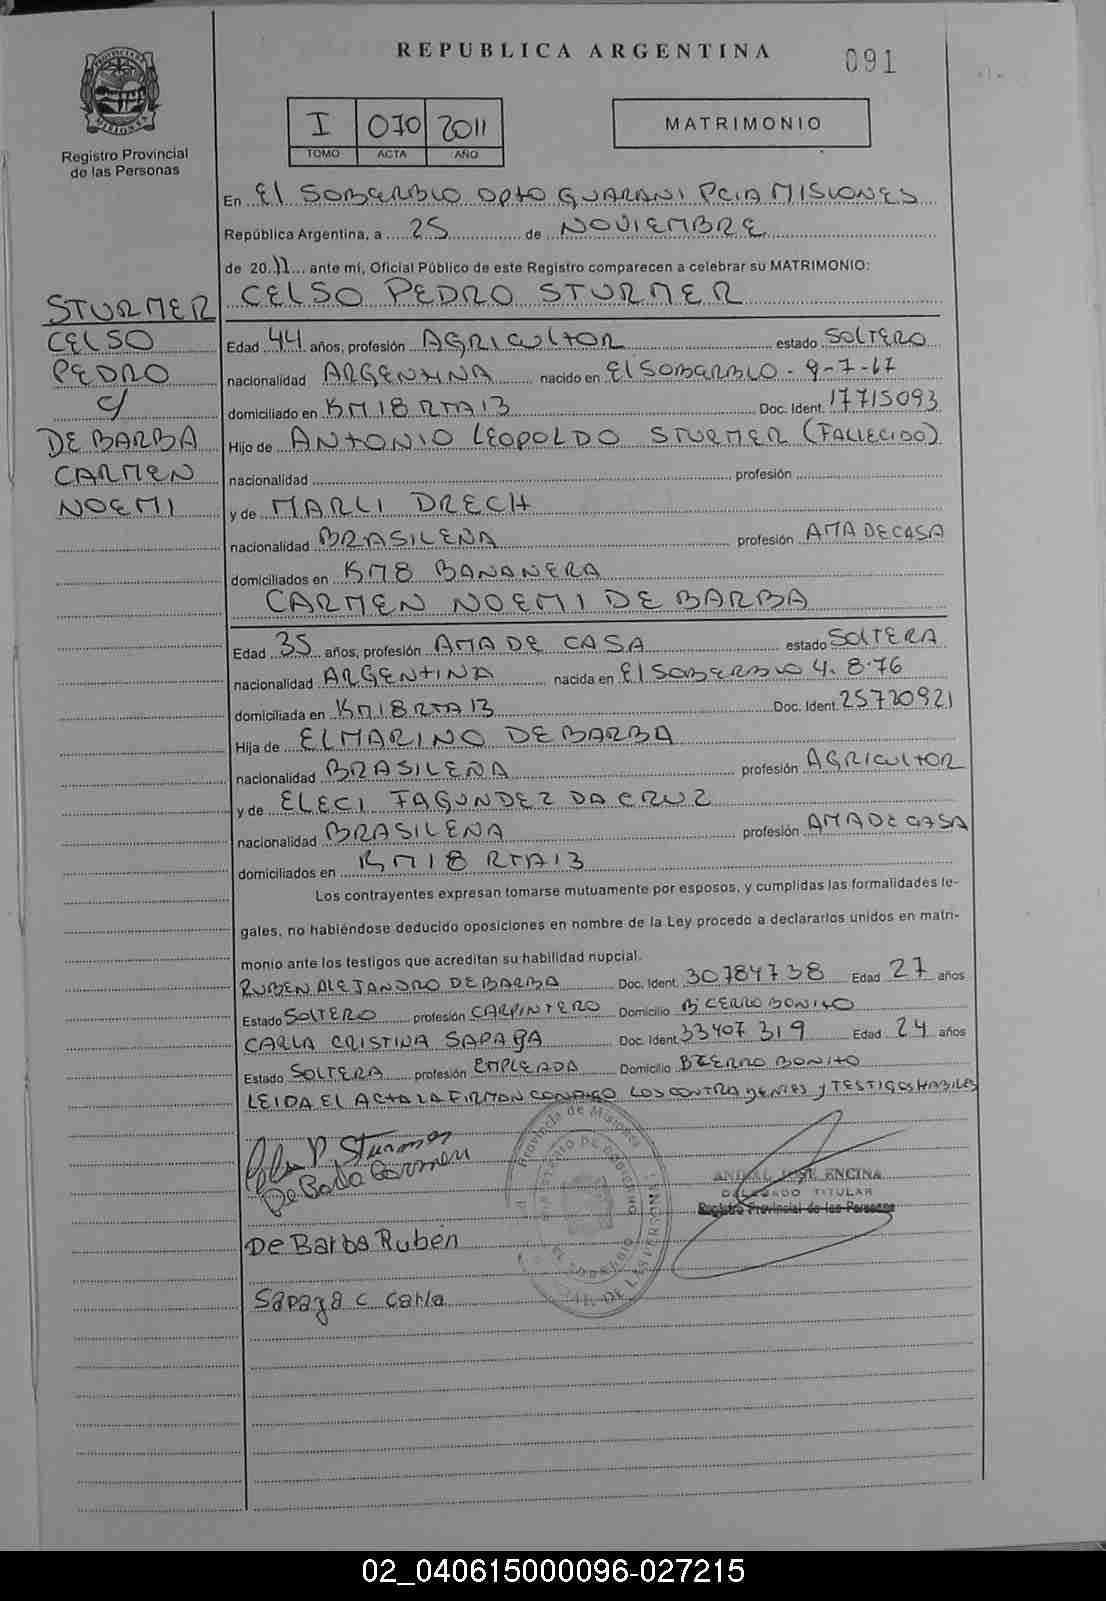 REPUBLICA ARGENTINA
091
PROVINCIA DE MISIONES
Registro Provincial
de las Personas
I 070 2011
TOMO ACTA AÑO
MATRIMONIO
En El SOBERBIO DPTO GUARANI PCIA MISIONES
República Argentina, a 25 de NOVIEMBRE
de 2011 ante mí, Oficial Público de este Registro comparecen a celebrar su MATRIMONIO:
STURMER
CELSO
PEDRO
c/
DE BARBA
CARMEN
NOEMI
CELSO PEDRO STURMER
Edad 44 años, profesión AGRICULTOR estado SOLTERO
nacionalidad ARGENTINA nacido en El SOBERBIO - 9-7-67
domiciliado en KM18 RTA13 Doc. Ident. 17715093
Hijo de ANTONIO LEOPOLDO STURMER (FALLECIDO)
nacionalidad profesión
y de MARLI DRECH
nacionalidad BRASILEÑA profesión AMA DE CASA
domiciliados en KM8 BANANERA
CARMEN NOEMI DE BARBA
Edad 35 años, profesión AMA DE CASA estado SOLTERA
nacionalidad ARGENTINA nacida en El SOBERBIO 4.8.76
domiciliada en KM18 RTA 13 Doc. Ident. 25720921
Hija de ELMARINO DE BARBA
nacionalidad BRASILEÑA profesión AGRICULTOR
y de ELECI FAGUNDEZ DA CRUZ
nacionalidad BRASILEÑA profesión AMA DE CASA
domiciliados en KM18 RTA13
Los contrayentes expresan tomarse mutuamente por esposos, y cumplidas las formalidades le-
gales, no habiéndose deducido oposiciones en nombre de la Ley procedo a declararlos unidos en matri-
monio ante los testigos que acreditan su habilidad nupcial.
RUBEN ALEJANDRO DE BARBA Doc. Ident. 30784738 Edad 27 años
Estado SOLTERO profesión CARPINTERO Domicilio B CERRO BONITO
CARLA CRISTINA SAPAGA Doc. Ident. 33407319 Edad 24 años
Estado SOLTERA profesión EMPLEADA Domicilio B CERRO BONITO
LEIDA EL ACTA LA FIRMAN CONMIGO LOS CONTRAYENTES y TESTIGOS HABILES
P. Sturmer
De Barba Carmen
De Barba Ruben
Sapaga C Carla
Provincia de Misiones
MINISTERIO DE GOBIERNO
EL SOBERBIO
DE LAS PERSONAS
ANIBAL JOSE ENCINA
DELEGADO TITULAR
Registro Provincial de las Personas
02_040615000096-027215